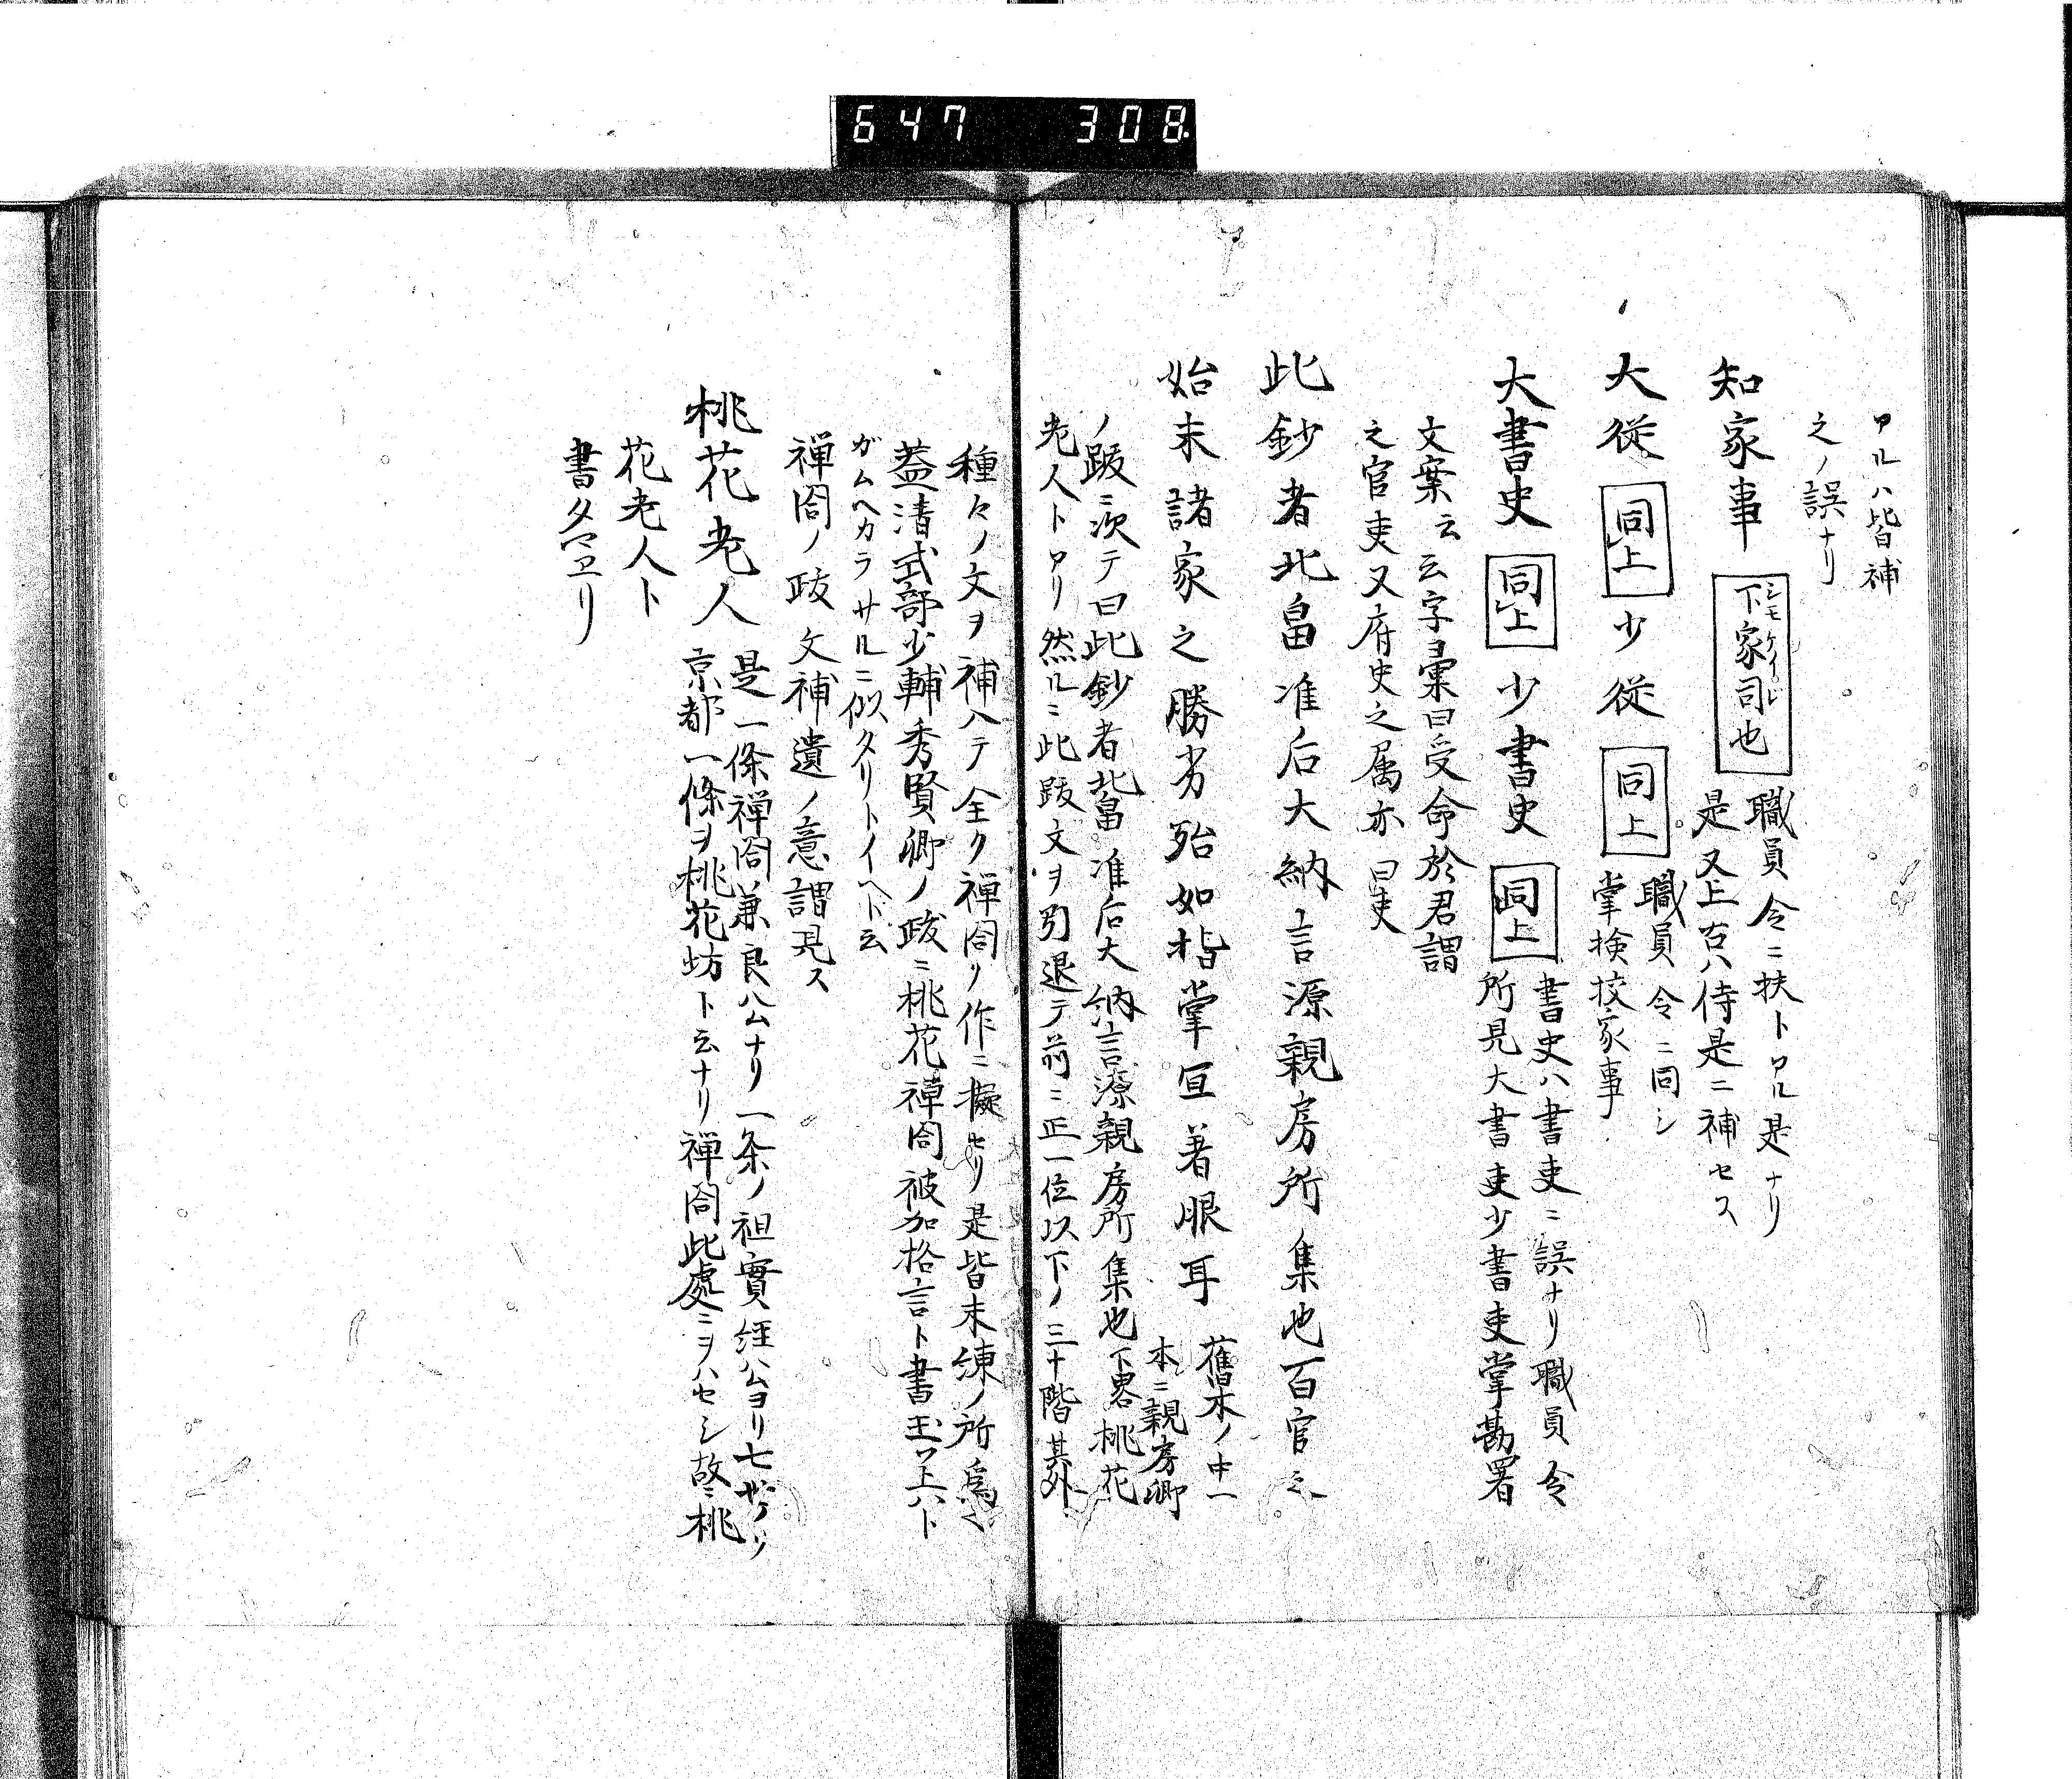 647 308
アルハ皆補
之ノ誤ナリ
知家事 下家司也 職員令ニ扶トアル是ナリ
シモケイシ
是又上古ハ侍是ニ補セス
大従 同上 少従 同上 職員令ニ同シ
掌検挍家事
大書史 同上 少書史 同上 書史ハ書吏ニ誤ナリ職員令
所見大書吏少書吏掌勘署
文案云云字彙曰受命於君謂
之官吏又府史之属亦曰吏
此鈔者北畠准后大納言源親房所集也百官之
始末諸家之勝劣殆如指掌宜著眼耳 舊本ノ中一
本ニ親房卿
ノ跋ニ次テ曰此鈔者北畠准后大納言源親房所集也下畧桃花
老人トアリ然ルニ此跋文ヲ引退テ前ニ正一位以下ノ三十階其外
種々ノ文ヲ補ハテ全ク禅閤ノ作ニ擬セリ是皆未練ノ所為
蓋清式部少輔秀賢卿ノ跋ニ桃花禅閤被加格言ト書玉フ上ハト
ガムヘカラサルニ似タリトイヘド云
禅閤ノ跋文補遺ノ意謂見ス
桃花老人 是一條禅閤兼良公ナリ一条ノ祖實経公ヨリ七世ナリ
京都一條ヲ桃花坊ト云ナリ禅閤此處ニヲハセシ故ニ桃
花老人ト
書タマヱリ